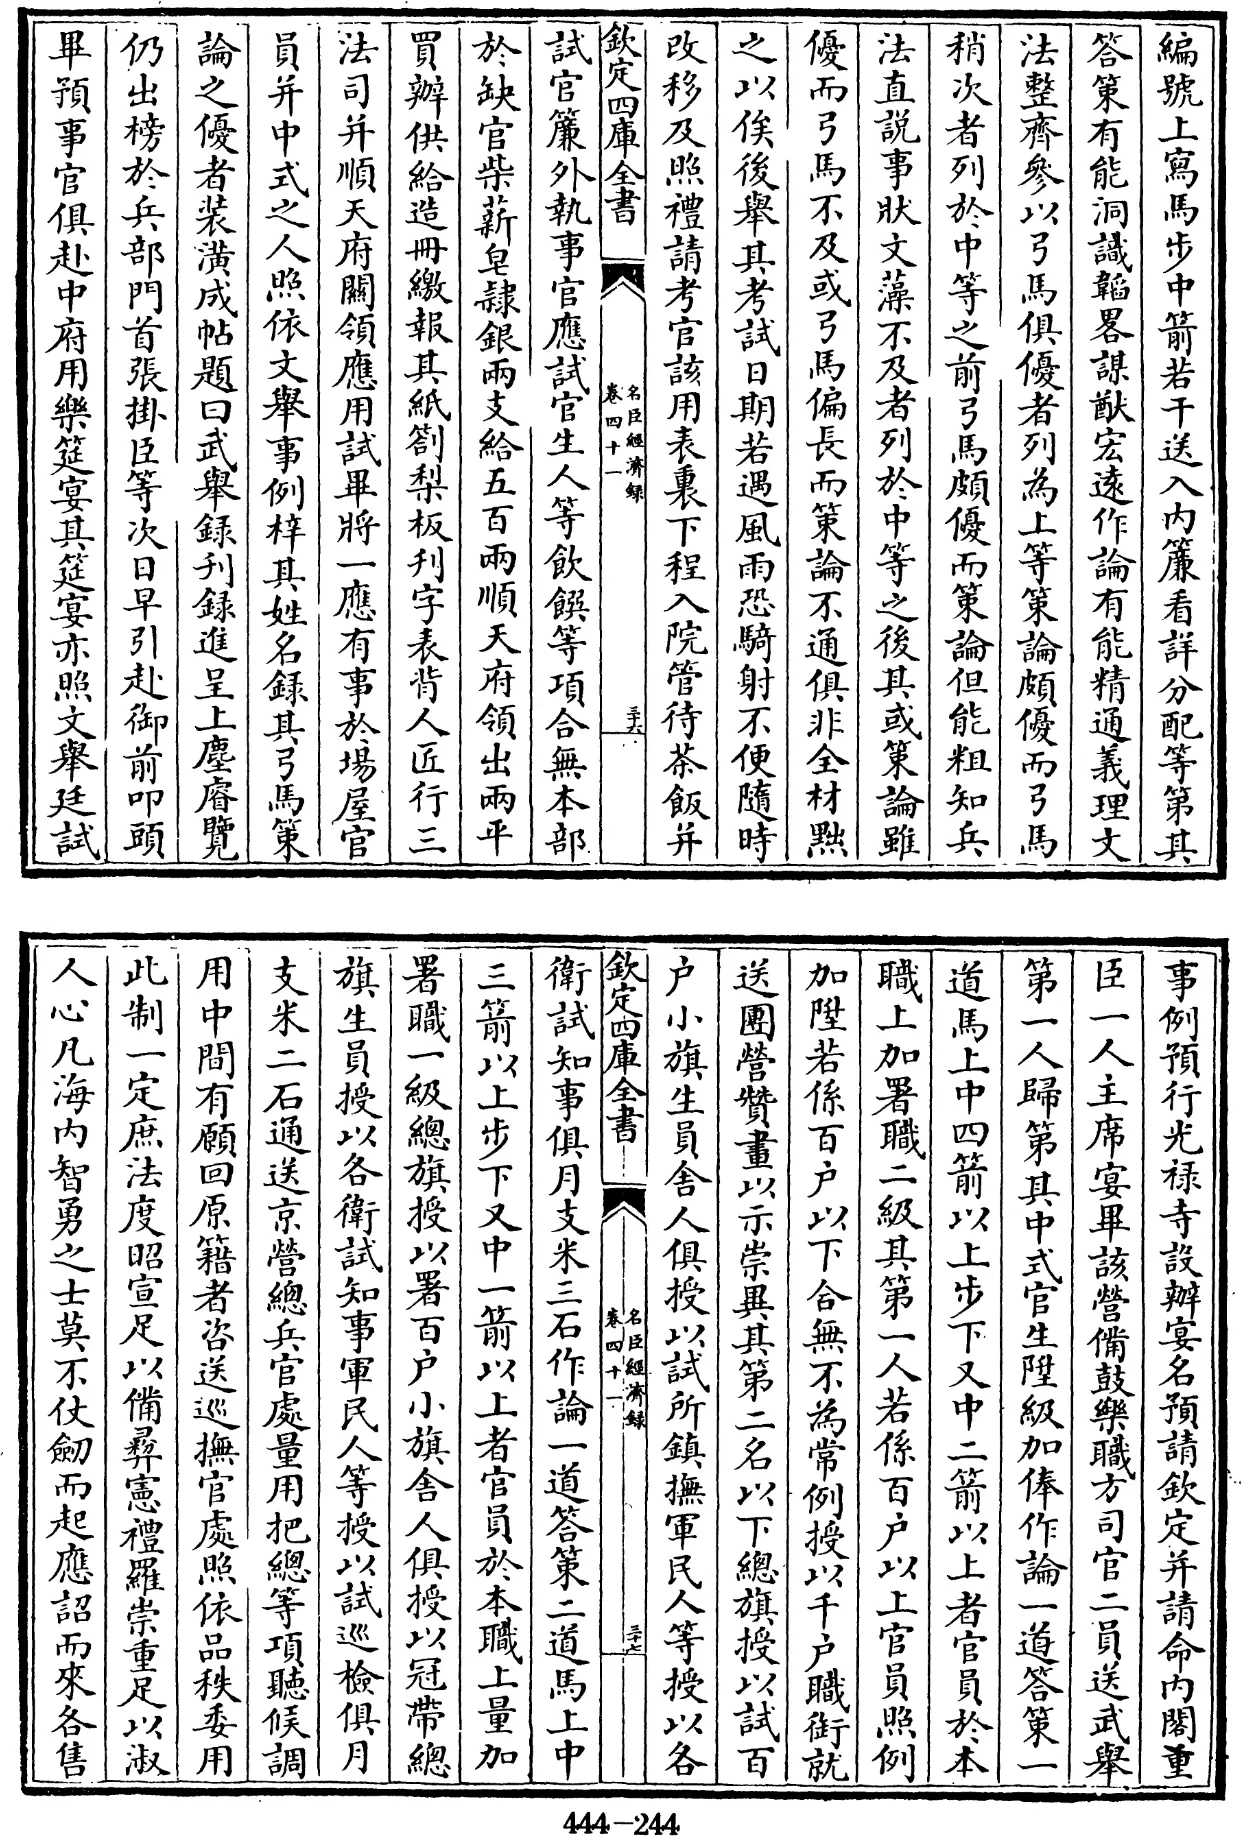 編號上寫馬步中箭若干送入内簾看詳分配等第其
答策有能洞識韜畧謀猷宏遠作論有能精通義理文
法整齊參以弓馬俱優者列為上等策論頗優而弓馬
稍次者列於中等之前弓馬頗優而策論但能粗知兵
法直説事狀文藻不及者列於中等之後其或策論雖
優而弓馬不及或弓馬偏長而策論不通俱非全材黜
之以俟後舉其考試日期若遇風雨恐騎射不便隨時
改移及照禮請考官該用表裏下程入院管待茶飯并
欽定四庫全書
名臣經濟録
卷四十一
三十六
試官簾外執事官應試官生人等飲饌等項合無本部
於缺官柴薪皂隷銀兩支給五百兩順天府領出兩平
買辦供給造冊繳報其紙劄梨板刋字表背人匠行三
法司并順天府關領應用試畢將一應有事於場屋官
員并中式之人照依文舉事例梓其姓名録其弓馬策
論之優者装潢成帖題曰武舉録刋録進呈上塵睿覽
仍出榜於兵部門首張掛臣等次日早引赴御前叩頭
畢預事官俱赴中府用樂筵宴其筵宴亦照文舉廷試
事例預行光禄寺設辦宴名預請欽定并請命内閣重
臣一人主席宴畢該營備鼓樂職方司官二員送武舉
第一人歸第其中式官生陞級加俸作論一道答策一
道馬上中四箭以上步下又中二箭以上者官員於本
職上加署職二級其第一人若係百户以上官員照例
加陞若係百户以下合無不為常例授以千户職銜就
送團營贊畫以示崇異其第二名以下總旗授以試百
户小旗生員舍人俱授以試所鎮撫軍民人等授以各
欽定四庫全書
名臣經濟録
卷四十一
三十七
衛試知事俱月支米三石作論一道答策二道馬上中
三箭以上步下又中一箭以上者官員於本職上量加
署職一級總旗授以署百户小旗舍人俱授以冠帶總
旗生員授以各衛試知事軍民人等授以試巡檢俱月
支米二石通送京營總兵官處量用把總等項聽候調
用中間有願回原籍者咨送巡撫官處照依品秩委用
此制一定庶法度昭宣足以備彛憲禮羅崇重足以淑
人心凡海内智勇之士莫不仗劒而起應詔而來各售
444-244